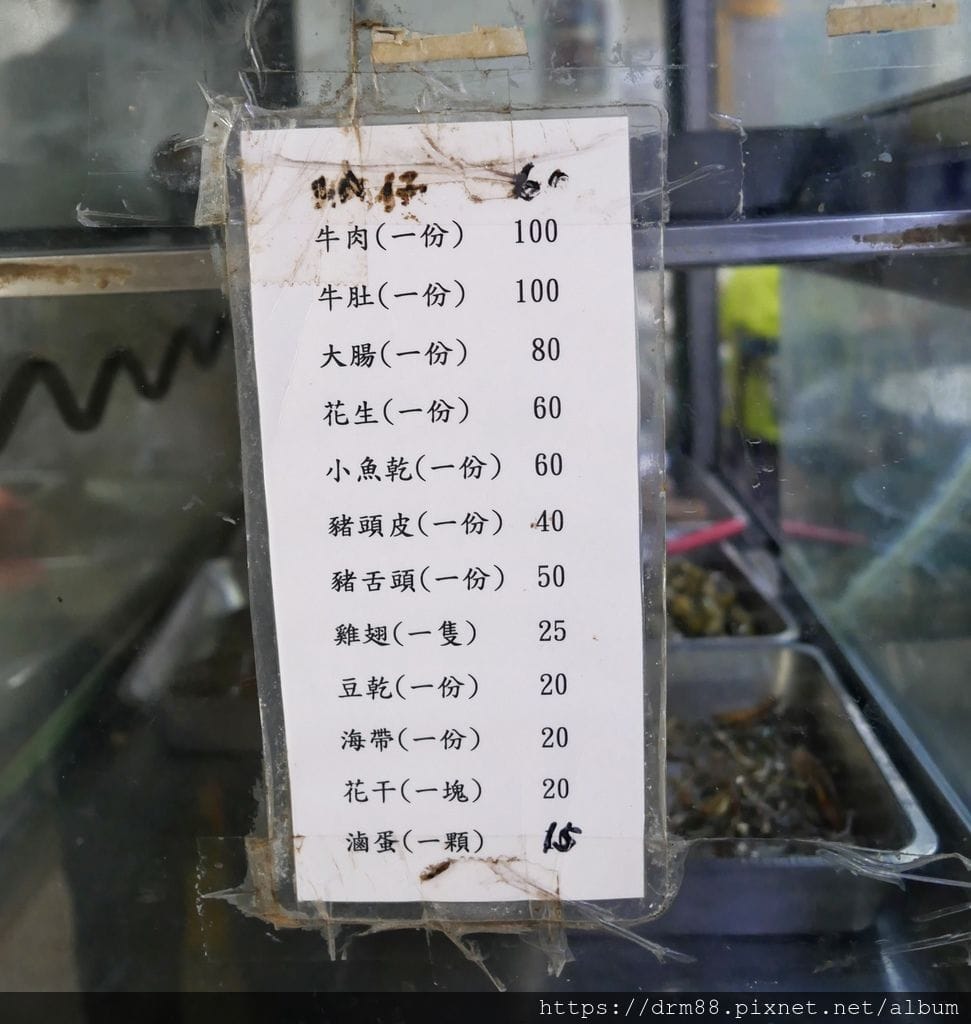 牛肉(一份) 100
牛肚(一份) 100
大腸(一份) 80
花生(一份) 60
小魚乾(一份) 60
豬頭皮(一份) 40
豬舌頭(一份) 50
雞翅(一隻) 25
豆乾(一份) 20
海帶(一份) 20
花干(一塊) 20
滷蛋(一顆) 15
https://drm88.pixnet.net/album